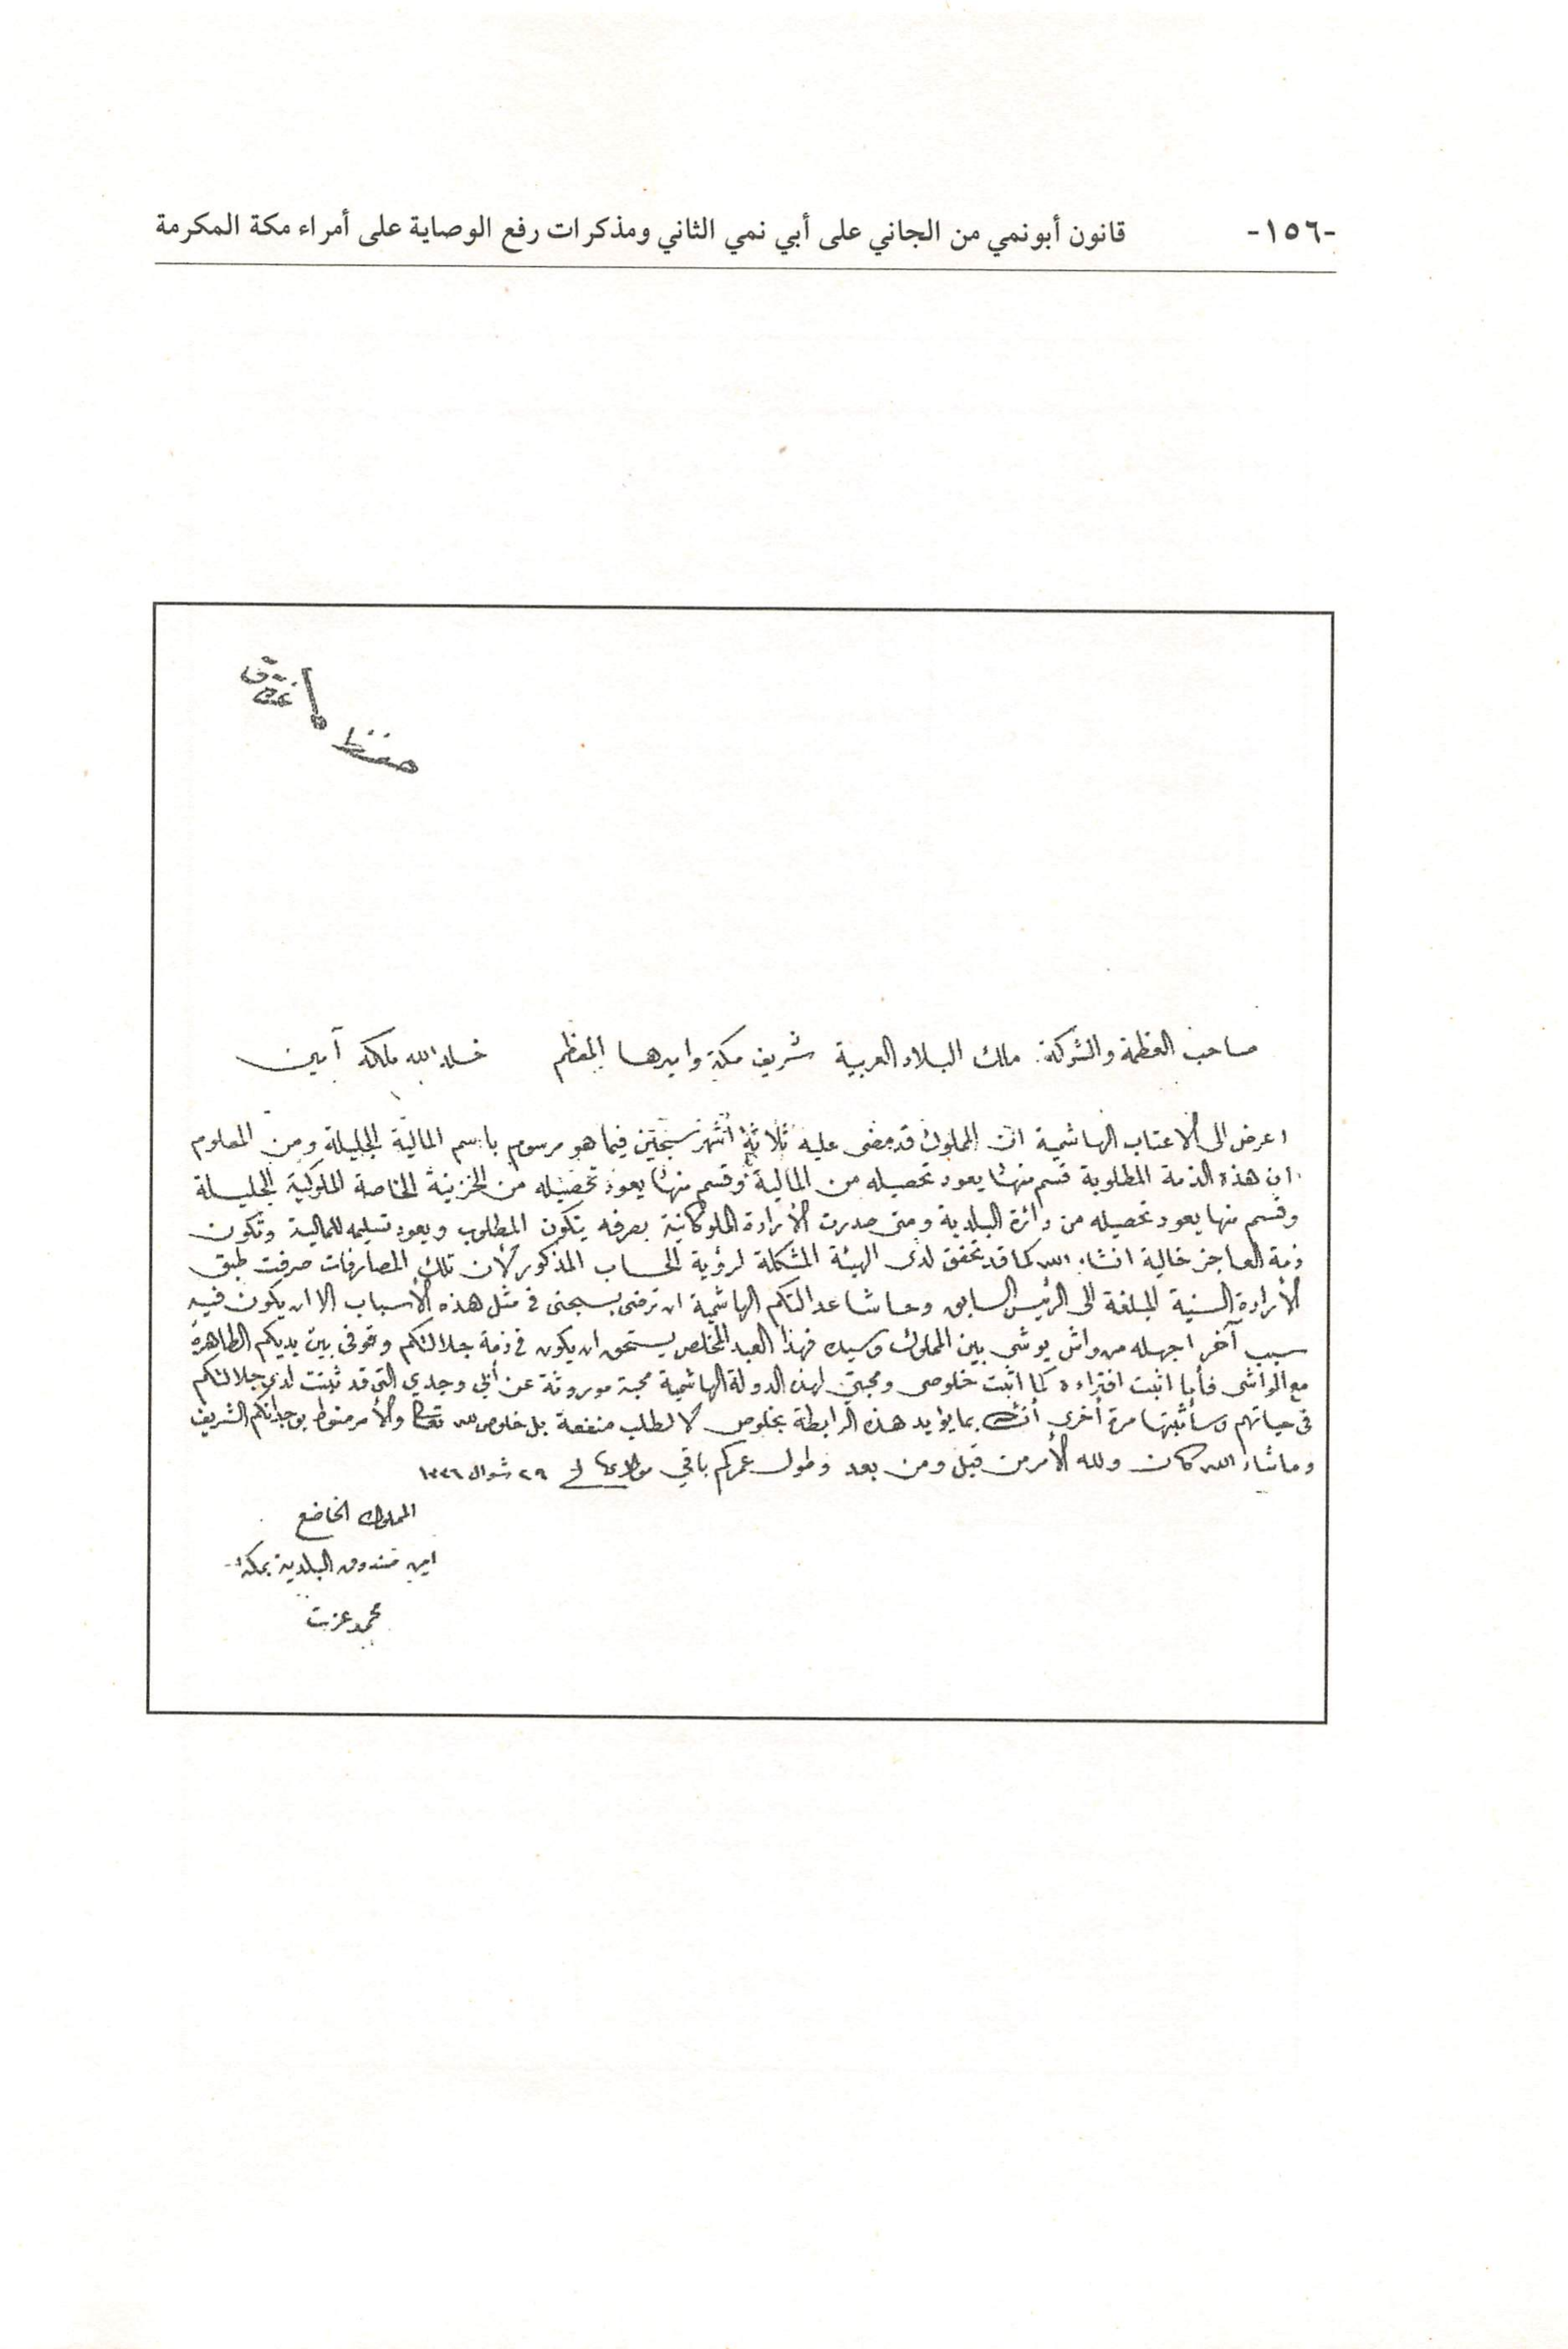 -١٥٦- قانون أبونمي من الجاني على أبي نمي الثاني ومذكرات رفع الوصاية على أمراء مكة المكرمة
صاحب العظمة والشوكة ملك البلاد العربية شريف مكة واميرها المعظم خلد الله ملكه آمين
اعرض الى الاعتاب الهاشمية ان المملوك قد مضى عليه ثلاثة أشهر سجين فيما هو مرسوم باسم المالية الجليلة ومن المعلوم
ان هذه الذمة المطلوبة قسم منها يعود تحصيله من المالية وقسم منها يعود تحصيله من الخزينة الخاصة الملوكية الجليلة
وقسم منها يعود تحصيله من دائرة البلدية ومتى صدرت الأرادة الملوكانية بصرفه يتكون المطلوب ويعود تسليمه للمالية وتكون
ذمة العاجز خالية انشاء الله كما قد تحقق لدى الهيئة المشكلة لرؤية الحساب المذكور لأن تلك المصارفات صرفت طبق
الأرادة السنية المبلغة الى الرئيس السابق وحاشا عدالتكم الهاشمية ان ترضى بسجنى فى مثل هذه الأسباب الا ان يكون فيه
سبب آخر اجهله من واش يوشى بين المملوك وسيده فهذا العبد المخلص يستحق ان يكون فى ذمة جلالتكم وقوفى بين يديكم الطاهرة
مع الواشى فأما اثبت افتراءه كما اثبت خلوصى ومحبتى لهذه الدولة الهاشمية محبة موروثة عن أبى وجدي التى قد ثبتت لدى جلالتكم
فى حياتهم وسأثبتها مرة أخرى بما يوايد هذه الرابطة بخلوص لا لطلب منفعة بل خلوص لله تعالى والأمر منوط الشريف
وماشاء الله كان ولله الأمر من قبل ومن بعد وطول عمركم باقي فى ٢٩ شوال ١٣٣٦
المملوك الخاضع
امين صندوق البلدية بمكة
محمد عزت